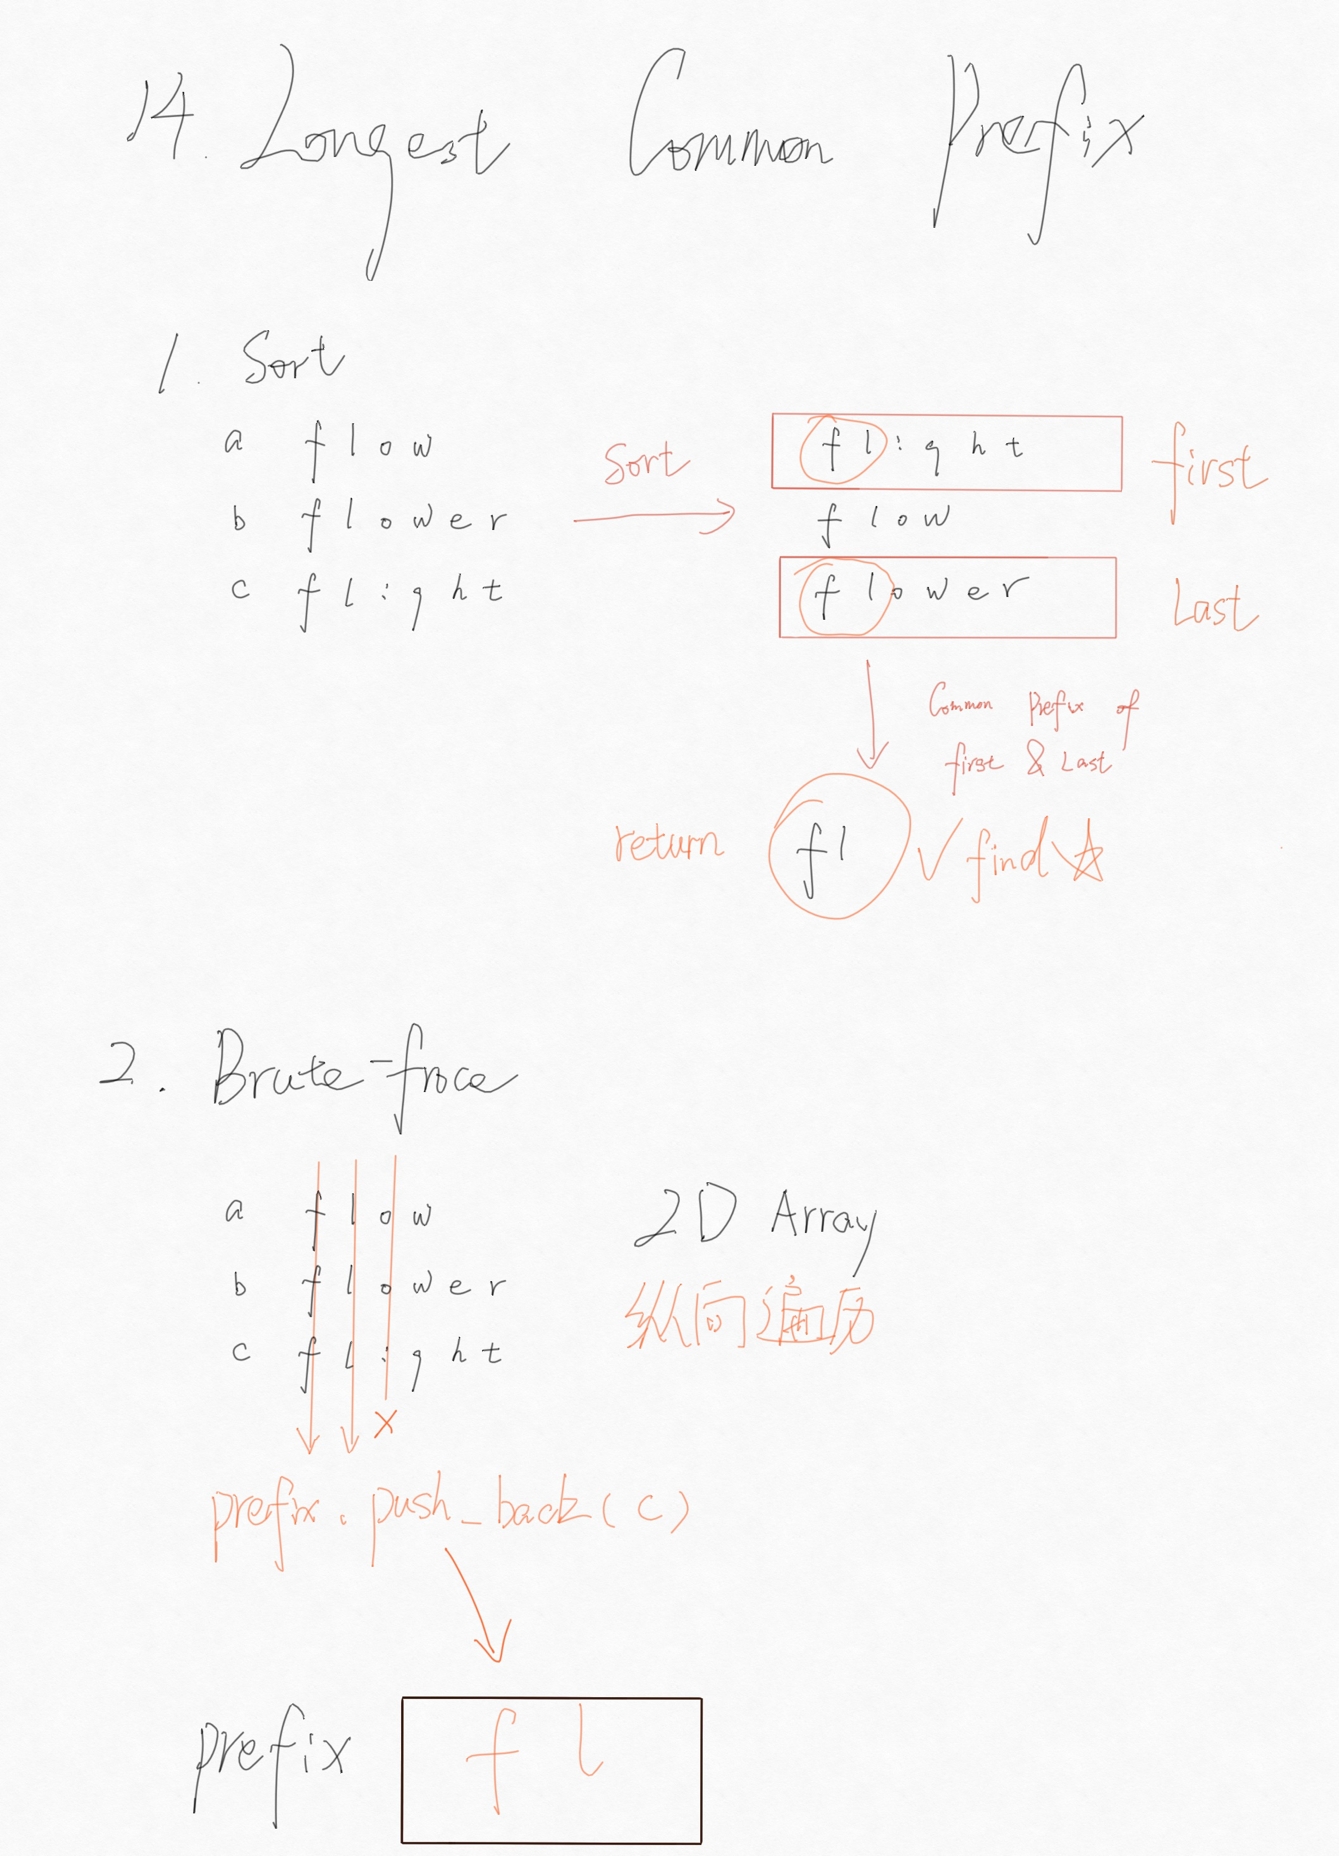 14. Longest Common Prefix
1. Sort
a flow
b flower
c flight
Sort
flight first
flow
flower Last
Common Prefix of
first & Last
return fl ✓ find ☆
2. Brute-froce
a flow
b flower
c flight
×
2D Array
纵向遍历
prefix.push_back(c)
prefix fl